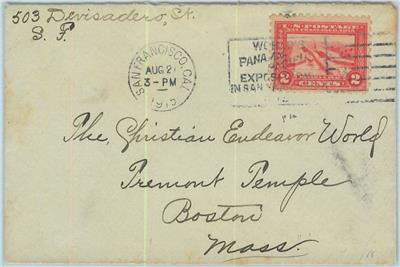 503 Devisadero, St.
S. F.
SAN FRANCISCO, CAL.
AUG 2
3-PM
1915
WO
PANA
EXPOS
IN SAN
U.S. POSTAGE
SAN FRANCISCO 1915
2 2
CENTS
The Christian Endeavor World
Tremont Temple
Boston
Mass.